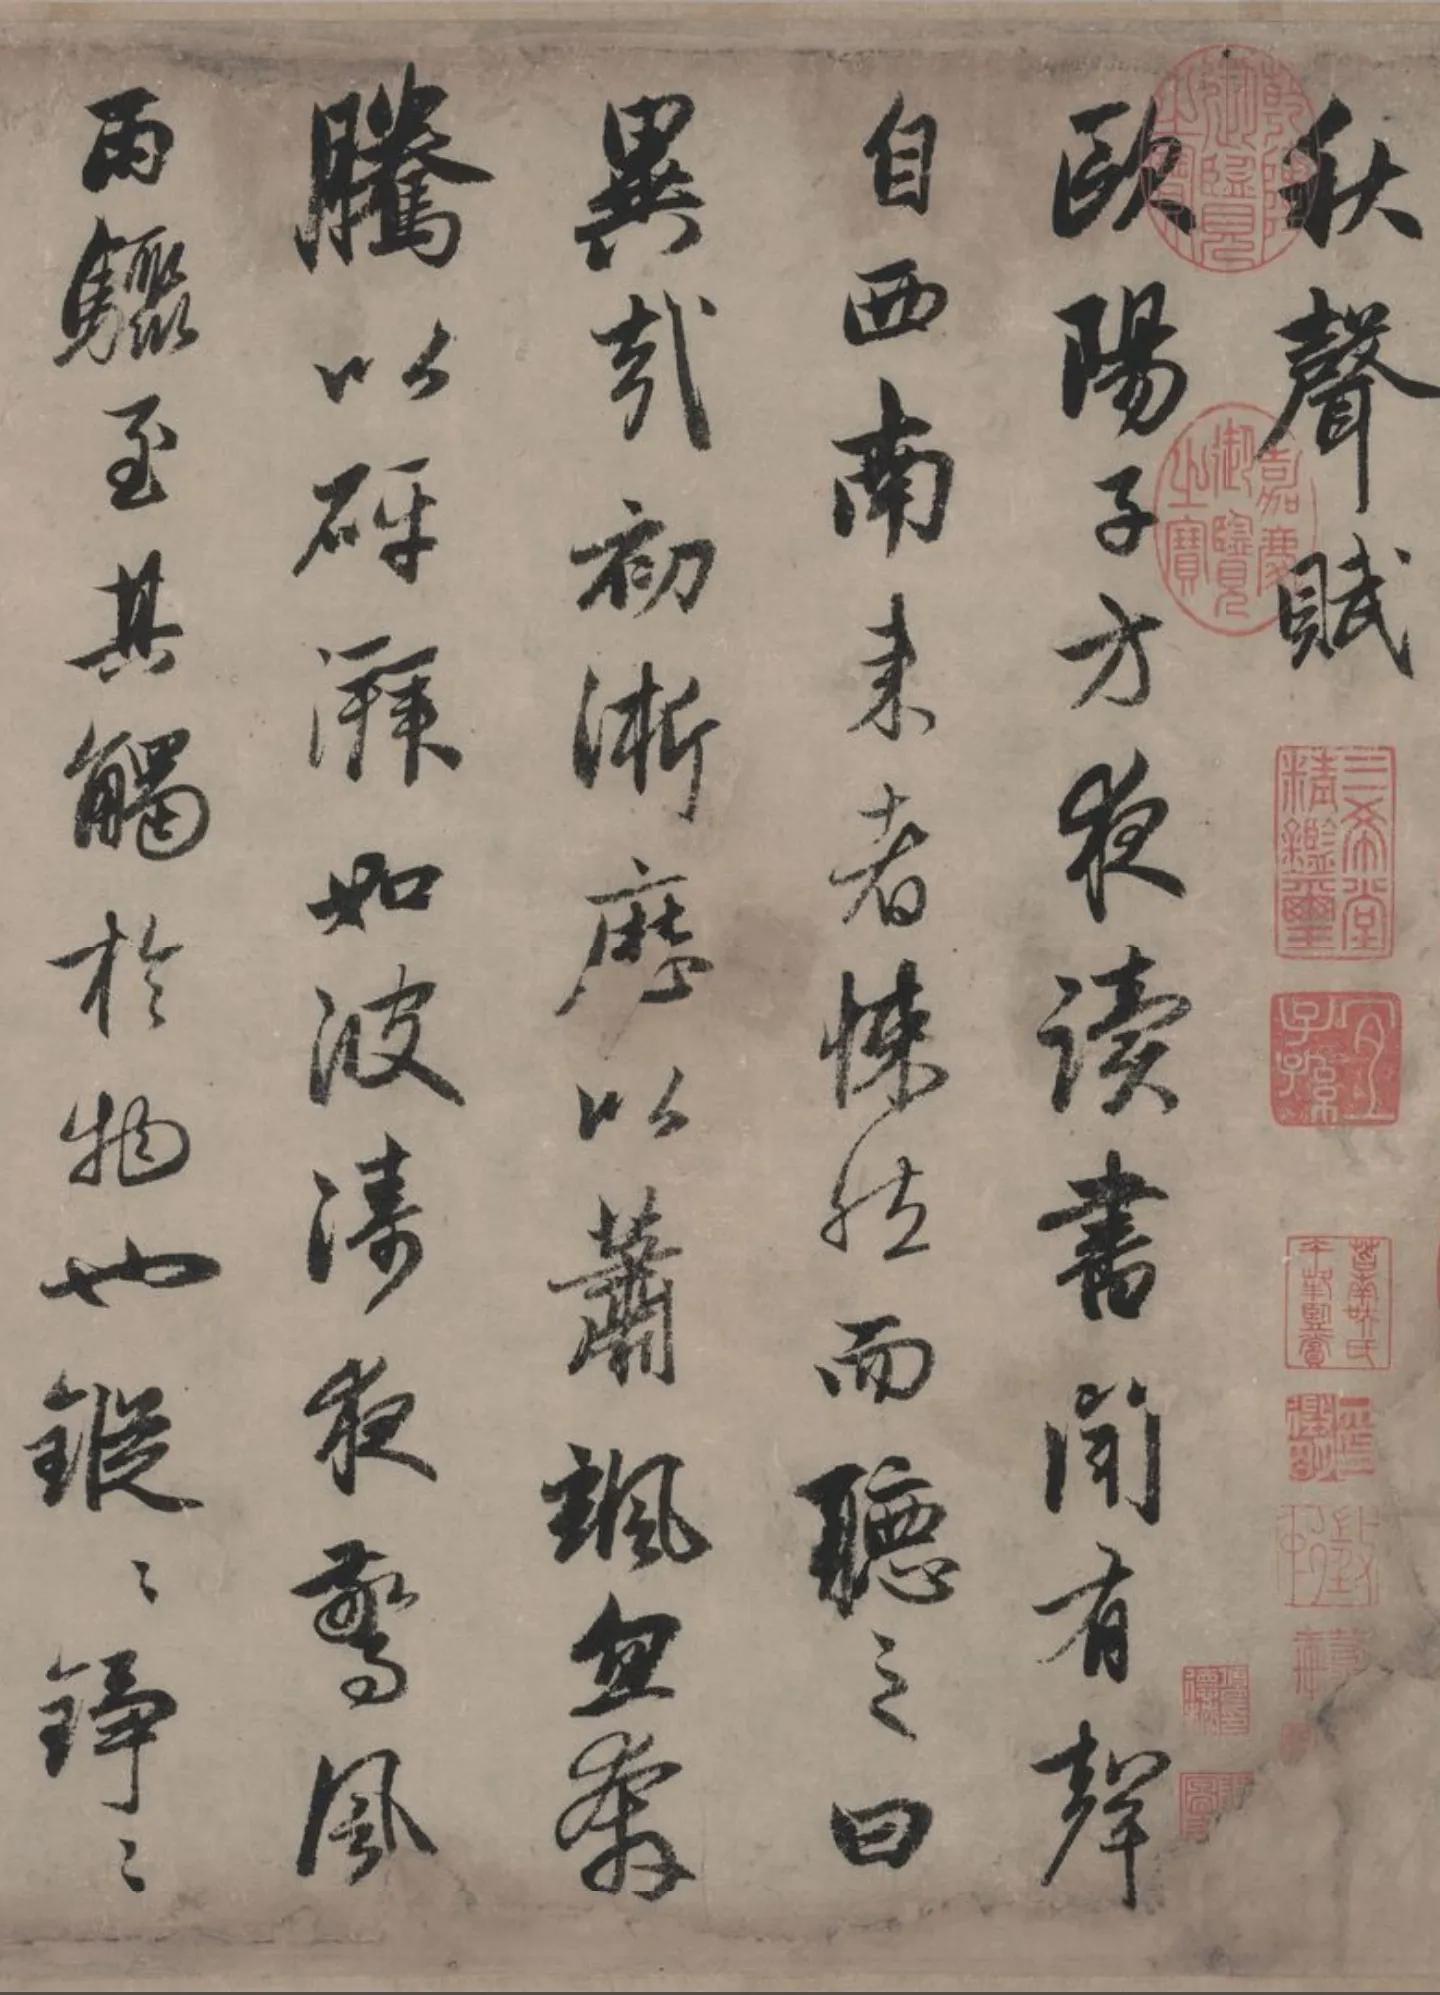 秋聲賦
歐陽子方夜讀書聞有聲
自西南來者悚然而聽之曰
異哉初淅歷以蕭颯忽奔
騰以砰湃如波濤夜驚風
雨驟至其觸於物也鏦〻
錚〻
乾隆御覽之寶
嘉慶御覽之寶
三希堂精鑑璽
宜子孫